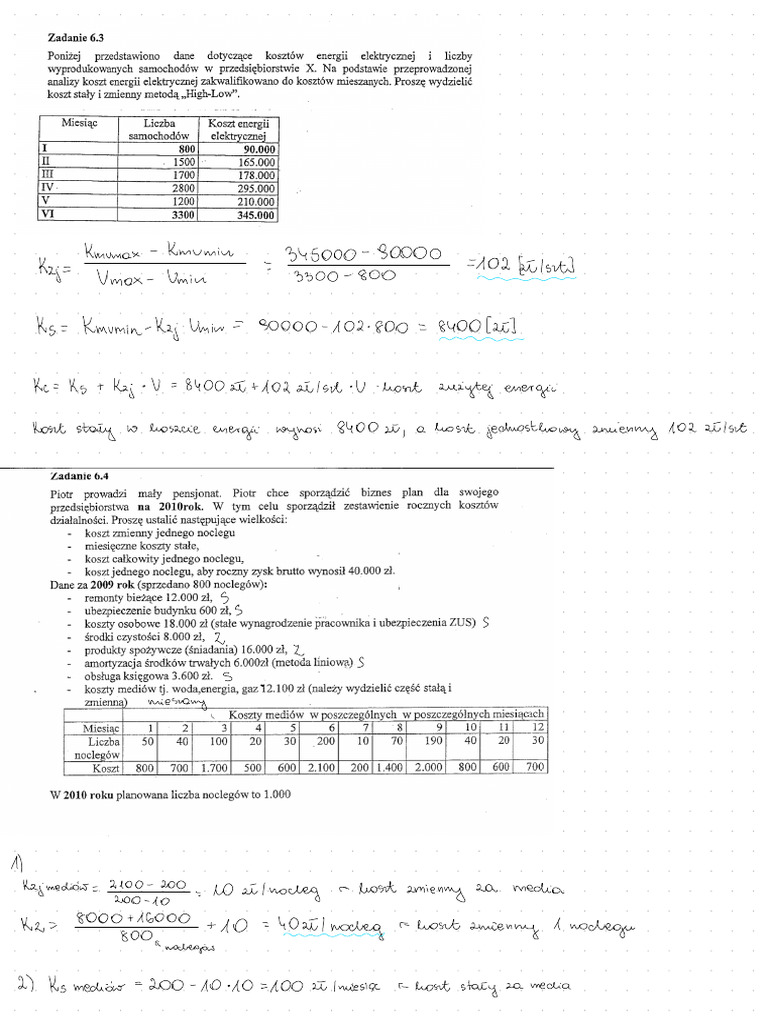 Zadanie 6.3
Poniżej przedstawiono dane dotyczące kosztów energii elektrycznej i liczby
wyprodukowanych samochodów w przedsiębiorstwie X. Na podstawie przeprowadzonej
analizy koszt energii elektrycznej zakwalifikowano do kosztów mieszanych. Proszę wydzielić
koszt stały i zmienny metodą „High-Low”.
Miesiąc Liczba samochodów Koszt energii elektrycznej
I 800 90.000
II 1500 165.000
III 1700 178.000
IV 2800 295.000
V 1200 210.000
VI 3300 345.000
Kzj = (Kmvmax - Kmvmin) / (Vmax - Vmin) = (345000 - 90000) / (3300 - 800) = 102 [zł/szt]
Ks = Kmvmin - Kzj · Vmin = 90000 - 102 · 800 = 8400 [zł]
Kc = Ks + Kzj · V = 8400 zł + 102 zł/szt · V - koszt zużytej energii
Koszt stały w koszcie energii wynosi 8400 zł, a koszt jednostkowy zmienny 102 zł/szt.
Zadanie 6.4
Piotr prowadzi mały pensjonat. Piotr chce sporządzić biznes plan dla swojego
przedsiębiorstwa na 2010rok. W tym celu sporządził zestawienie rocznych kosztów
działalności. Proszę ustalić następujące wielkości:
- koszt zmienny jednego noclegu
- miesięczne koszty stałe,
- koszt całkowity jednego noclegu,
- koszt jednego noclegu, aby roczny zysk brutto wynosił 40.000 zl.
Dane za 2009 rok (sprzedano 800 noclegów):
- remonty bieżące 12.000 zł, S
- ubezpieczenie budynku 600 zł, S
- koszty osobowe 18.000 zł (stałe wynagrodzenie pracownika i ubezpieczenia ZUS) S
- środki czystości 8.000 zł, Z
- produkty spożywcze (śniadania) 16.000 zł, Z
- amortyzacja środków trwałych 6.000zl (metoda liniowa) S
- obsługa księgowa 3.600 zł. S
- koszty mediów tj. woda,energia, gaz 12.100 zł (należy wydzielić część stałą i
zmienną) mieszany
Koszty mediów w poszczególnych w poszczególnych miesiącach
Miesiąc 1 2 3 4 5 6 7 8 9 10 11 12
Liczba noclegów 50 40 100 20 30 200 10 70 190 40 20 30
Koszt 800 700 1.700 500 600 2.100 200 1.400 2.000 800 600 700
W 2010 roku planowana liczba noclegów to 1.000
1)
Kzj mediów = (2100 - 200) / (200 - 10) = 10 zł/nocleg - koszt zmienny za media
Kz = (8000 + 16000) / 800 + 10 = 40 zł/nocleg - koszt zmienny 1 noclegu
noclegów
2) Ks mediów = 200 - 10 · 10 = 100 zł/miesiąc - koszt stały za media